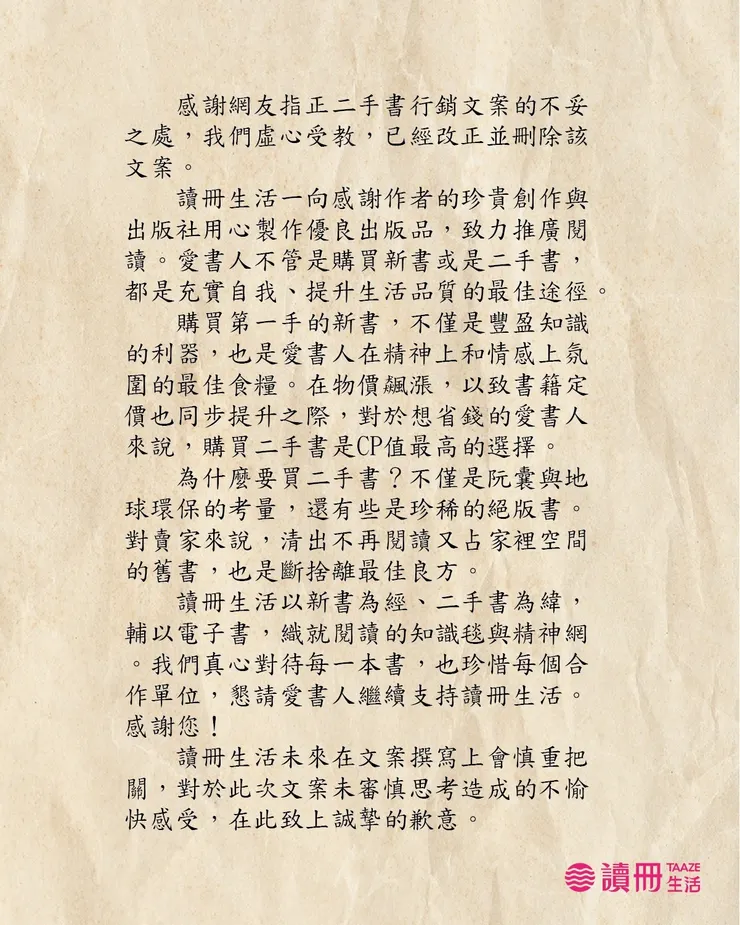 感謝網友指正二手書行銷文案的不妥
之處，我們虛心受教，已經改正並刪除該
文案。
讀冊生活一向感謝作者的珍貴創作與
出版社用心製作優良出版品，致力推廣閱
讀。愛書人不管是購買新書或是二手書，
都是充實自我、提升生活品質的最佳途徑。
購買第一手的新書，不僅是豐盈知識
的利器，也是愛書人在精神上和情感上氛
圍的最佳食糧。在物價飆漲，以致書籍定
價也同步提升之際，對於想省錢的愛書人
來說，購買二手書是CP值最高的選擇。
為什麼要買二手書？不僅是阮囊與地
球環保的考量，還有些是珍稀的絕版書。
對賣家來說，清出不再閱讀又占家裡空間
的舊書，也是斷捨離最佳良方。
讀冊生活以新書為經、二手書為緯，
輔以電子書，織就閱讀的知識毯與精神網
。我們真心對待每一本書，也珍惜每個合
作單位，懇請愛書人繼續支持讀冊生活。
感謝您！
讀冊生活未來在文案撰寫上會慎重把
關，對於此次文案未審慎思考造成的不愉
快感受，在此致上誠摯的歉意。
讀冊 TAAZE 生活